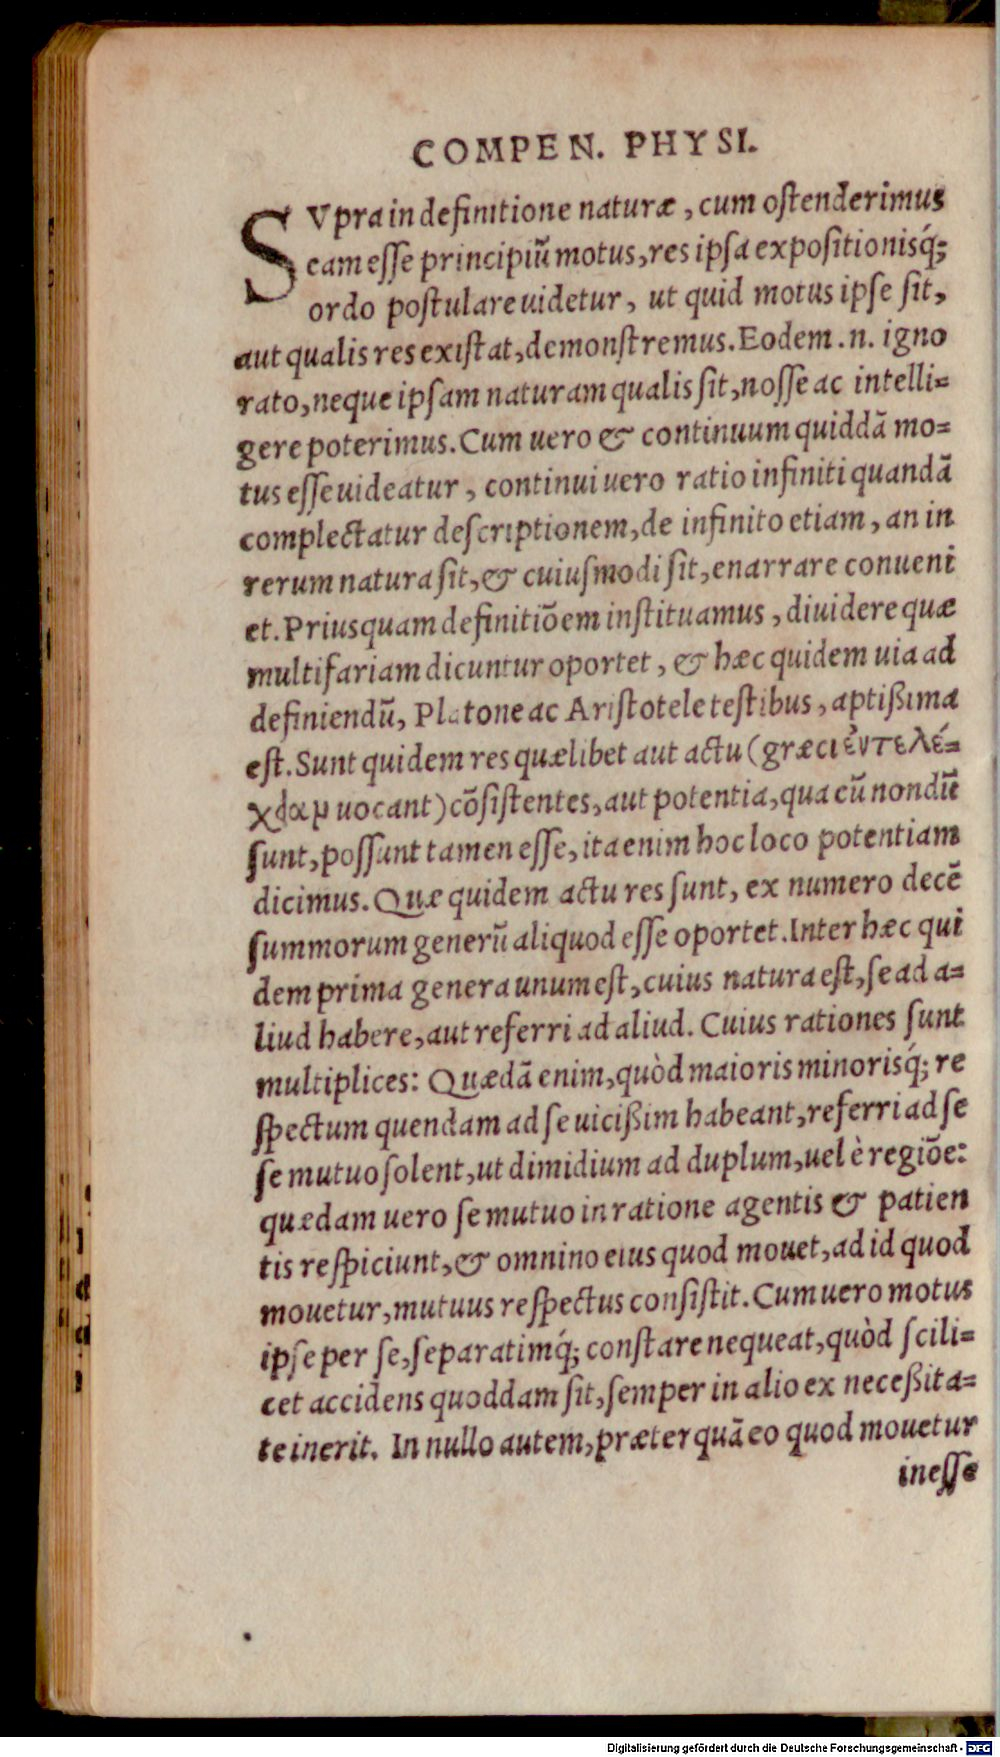 COMPEN. PHYSI.
SVpra in definitione naturæ, cum ostenderimus
eam esse principiũ motus, res ipsa expositionisq́;
ordo postulare uidetur, ut quid motus ipse sit,
aut qualis res existat, demonstremus. Eodem .n. igno
rato, neque ipsam naturam qualis sit, nosse ac intelli=
gere poterimus. Cum uero & continuum quiddã mo=
tus esse uideatur, continui uero ratio infiniti quandã
complectatur descriptionem, de infinito etiam, an in
rerum natura sit, & cuiusmodi sit, enarrare conueni
et. Priusquam definitiõem instituamus, diuidere quæ
multifariam dicuntur oportet, & hæc quidem uia ad
definiendũ, Platone ac Aristotele testibus, aptißima
est. Sunt quidem res quælibet aut actu (græci ἐντελέ=
χειαμ uocant) cõsistentes, aut potentia, qua cũ nondũ
sunt, possunt tamen esse, ita enim hoc loco potentiam
dicimus. Quæ quidem actu res sunt, ex numero decẽ
summorum generũ aliquod esse oportet. Inter hæc qui
dem prima genera unum est, cuius natura est, se ad a=
liud habere, aut referri ad aliud. Cuius rationes sunt
multiplices: Quædã enim, quòd maioris minorisq́; re
spectum quendam ad se uicißim habeant, referri ad se
se mutuo solent, ut dimidium ad duplum, uel è regiõe:
quædam uero se mutuo in ratione agentis & patien
tis respiciunt, & omnino eius quod mouet, ad id quod
mouetur, mutuus respectus consistit. Cum uero motus
ipse per se, separatimq́; constare nequeat, quòd scili=
cet accidens quoddam sit, semper in alio ex neceßita=
te inerit. In nullo autem, præterquã eo quod mouetur
inesse
Digitalisierung gefördert durch die Deutsche Forschungsgemeinschaft - DFG